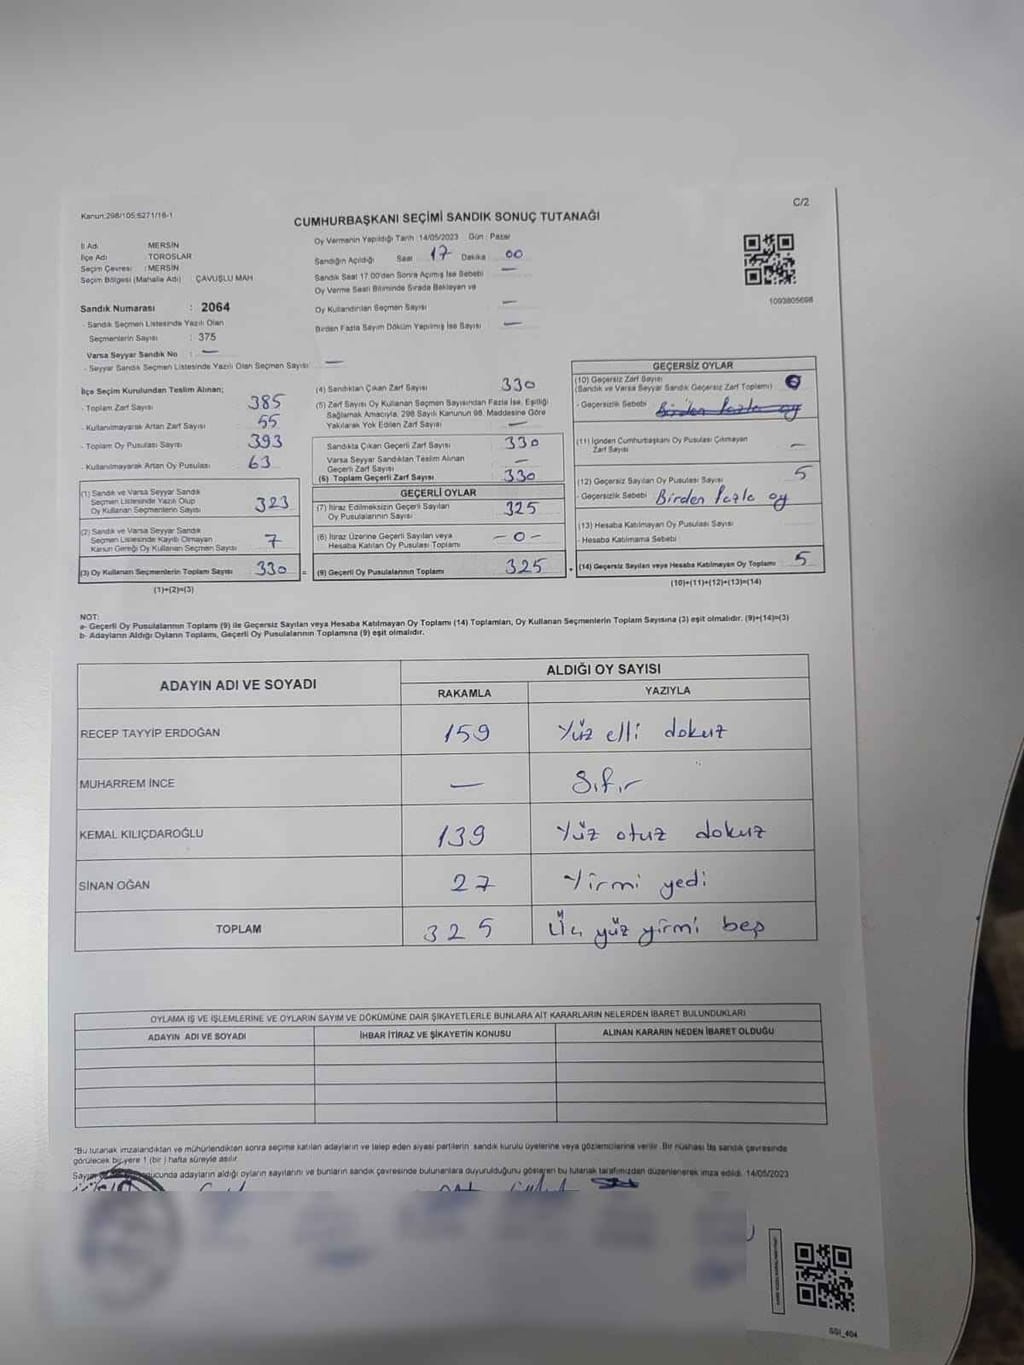 Kanun:298/105;6271/16-1
C/2
CUMHURBAŞKANI SEÇİMİ SANDIK SONUÇ TUTANAĞI
İl Adı : MERSİN
İlçe Adı : TOROSLAR
Seçim Çevresi : MERSİN
Seçim Bölgesi (Mahalle Adı) : ÇAVUŞLU MAH
Sandık Numarası : 2064
- Sandık Seçmen Listesinde Yazılı Olan
Seçmenlerin Sayısı : 375
Varsa Seyyar Sandık No : —
- Seyyar Sandık Seçmen Listesinde Yazılı Olan Seçmen Sayısı —
Oy Vermenin Yapıldığı Tarih :14/05/2023 Gün : Pazar
Sandığın Açıldığı Saat 17 Dakika 00
Sandık Saat 17:00'den Sonra Açılmış İse Sebebi —
Oy Verme Saati Bitiminde Sırada Bekleyen ve
Oy Kullandırılan Seçmen Sayısı —
Birden Fazla Sayım Döküm Yapılmış İse Sayısı —
1093805698
İlçe Seçim Kurulundan Teslim Alınan;
- Toplam Zarf Sayısı 385
- Kullanılmayarak Artan Zarf Sayısı 55
- Toplam Oy Pusulası Sayısı 393
- Kullanılmayarak Artan Oy Pusulası 63
(1) Sandık ve Varsa Seyyar Sandık
Seçmen Listesinde Yazılı Olup
Oy Kullanan Seçmenlerin Sayısı 323
(2) Sandık ve Varsa Seyyar Sandık
Seçmen Listesinde Kayıtlı Olmayan
Kanun Gereği Oy Kullanan Seçmen Sayısı 7
(3) Oy Kullanan Seçmenlerin Toplam Sayısı 330 =
(1)+(2)=(3)
(4) Sandıktan Çıkan Zarf Sayısı 330
(5) Zarf Sayısı Oy Kullanan Seçmen Sayısından Fazla İse, Eşitliği
Sağlamak Amacıyla, 298 Sayılı Kanunun 98. Maddesine Göre
Yakılarak Yok Edilen Zarf Sayısı —
Sandıkta Çıkan Geçerli Zarf Sayısı 330
Varsa Seyyar Sandıktan Teslim Alınan
Geçerli Zarf Sayısı —
(6) Toplam Geçerli Zarf Sayısı 330
GEÇERLİ OYLAR
(7) İtiraz Edilmeksizin Geçerli Sayılan
Oy Pusulalarının Sayısı 325
(8) İtiraz Üzerine Geçerli Sayılan veya
Hesaba Katılan Oy Pusulası Toplamı -0-
(9) Geçerli Oy Pusulalarının Toplamı 325 +
GEÇERSİZ OYLAR
(10) Geçersiz Zarf Sayısı
(Sandık ve Varsa Seyyar Sandık Geçersiz Zarf Toplamı) 0
- Geçersizlik Sebebi Birden Fazla oy
(11) İçinden Cumhurbaşkanı Oy Pusulası Çıkmayan
Zarf Sayısı —
(12) Geçersiz Sayılan Oy Pusulası Sayısı 5
- Geçersizlik Sebebi Birden Fazla oy
(13) Hesaba Katılmayan Oy Pusulası Sayısı
- Hesaba Katılmama Sebebi
(14) Geçersiz Sayılan veya Hesaba Katılmayan Oy Toplamı 5
(10)+(11)+(12)+(13)=(14)
NOT:
a- Geçerli Oy Pusulalarının Toplam (9) ile Geçersiz Sayılan veya Hesaba Katılmayan Oy Toplamı (14) Toplamları, Oy Kullanan Seçmenlerin Toplam Sayısına (3) eşit olmalıdır. (9)+(14)=(3)
b- Adayların Aldığı Oyların Toplamı, Geçerli Oy Pusulalarının Toplamına (9) eşit olmalıdır.
ADAYIN ADI VE SOYADI ALDIĞI OY SAYISI
RAKAMLA YAZIYLA
RECEP TAYYİP ERDOĞAN 159 Yüz elli dokuz
MUHARREM İNCE — Sıfır
KEMAL KILIÇDAROĞLU 139 Yüz otuz dokuz
SİNAN OĞAN 27 Yirmi yedi
TOPLAM 325 Üç yüz yirmi beş
OYLAMA İŞ VE İŞLEMLERİNE VE OYLARIN SAYIM VE DÖKÜMÜNE DAİR ŞİKAYETLERLE BUNLARA AİT KARARLARIN NELERDEN İBARET BULUNDUKLARI
ADAYIN ADI VE SOYADI İHBAR İTİRAZ VE ŞİKAYETİN KONUSU ALINAN KARARIN NEDEN İBARET OLDUĞU
"Bu tutanak imzalandıktan ve mühürlendikten sonra seçime katılan adayların ve talep eden siyasi partilerin sandık kurulu üyelerine veya gözlemcilerine verilir. Bir nüshası da sandık çevresinde
görülecek bir yere 1 (bir) hafta süreyle asılır.
ucunda adayların aldığı oyların sayılarını ve bunların sandık çevresinde bulunanlara duyurulduğunu gösteren bu tutanak tarafımızdan düzenlenerek imza edildi. 14/05/2023
SSI_404